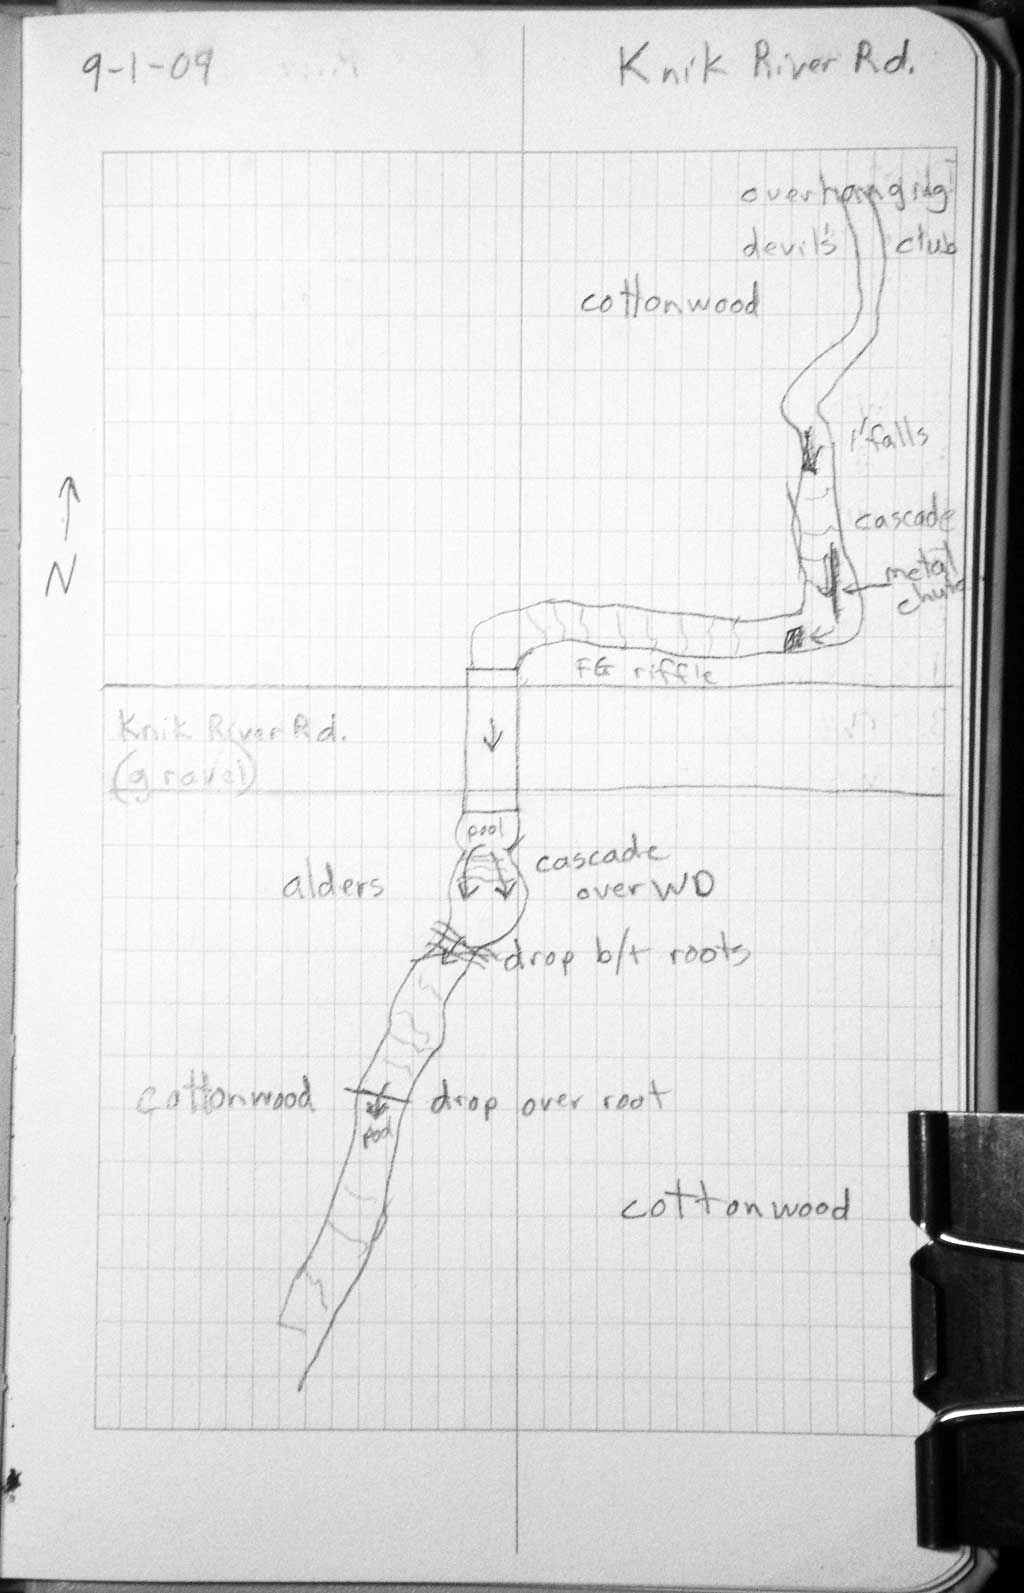 9-1-09
Knik River Rd.
overhanging
devil's club
cottonwood
1' falls
cascade
N
metal
chute
FG riffle
Knik River Rd.
(gravel)
pool
cascade
over WD
alders
drop b/t roots
cottonwood
drop over root
pool
cottonwood